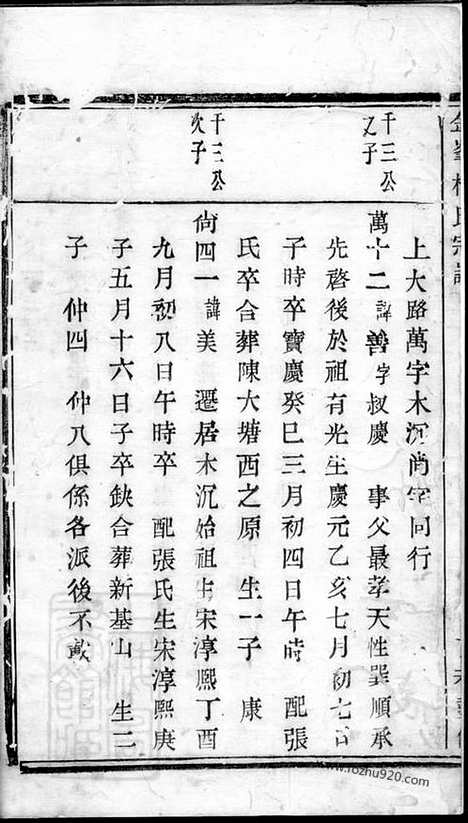 楊氏宗譜
上大路萬字木沉尚字同行
千三公
又子
萬十二 諱善字叔慶 事父最孝天性巽順承
先啓後於祖有光生慶元乙亥七月初七日
子時卒寶慶癸巳三月初四日午時 配張
氏卒合葬陳大塘西之原 生一子 康
千三公
次子
尚四一 諱美 遷居木沉始祖生宋淳熙丁酉
九月初八日午時卒 配張氏生宋淳熙庚
子五月十六日子卒缺合葬新基山 生二
子 仲四 仲八俱係各派後不載
www.rozhu920.com